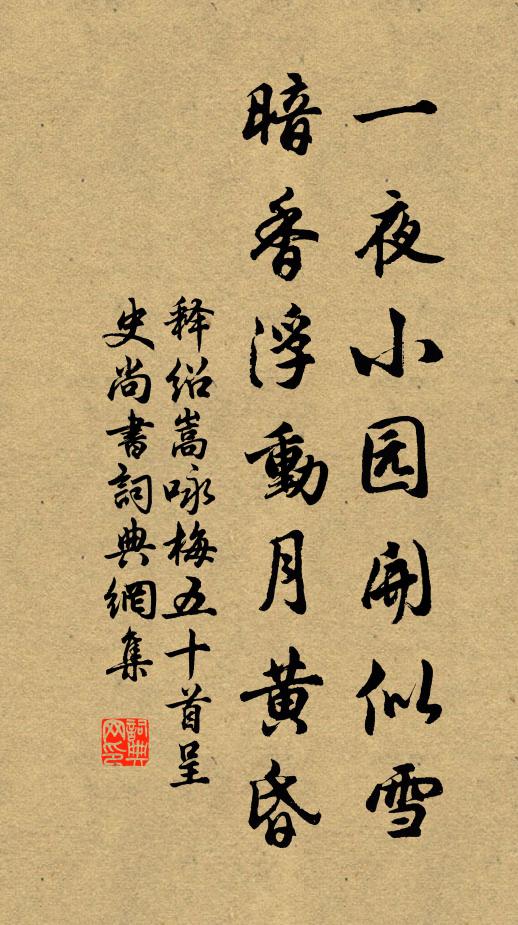 一夜小园開似雪
暗香浮動月黄昏
释绍嵩咏梅五十首呈
史尚書詞典網集
詞典网印